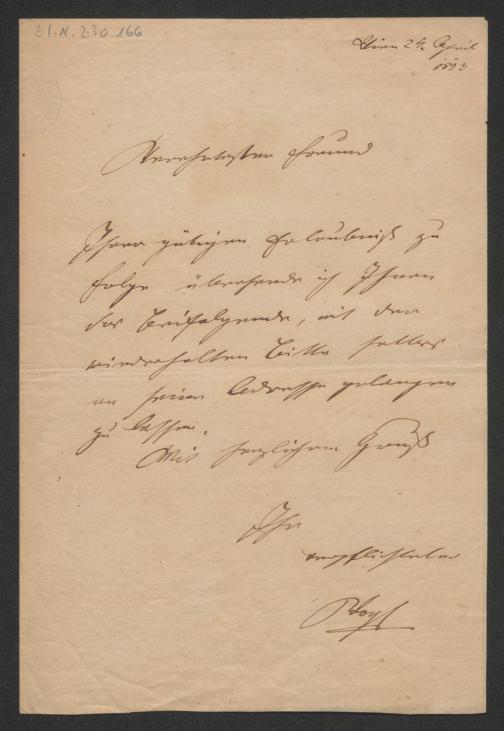 I.N. 230 166
Wien 24. April
1883
Verehrtester Freund
Ihrer gütigen Erlaubniß zu
folge übersende ich Ihnen
das Beifolgende, mit der
wiederholten Bitte selbes
an seine Adresse gelangen
zu lassen.
Mit herzlichem Gruß
Ihr
verpflichteter